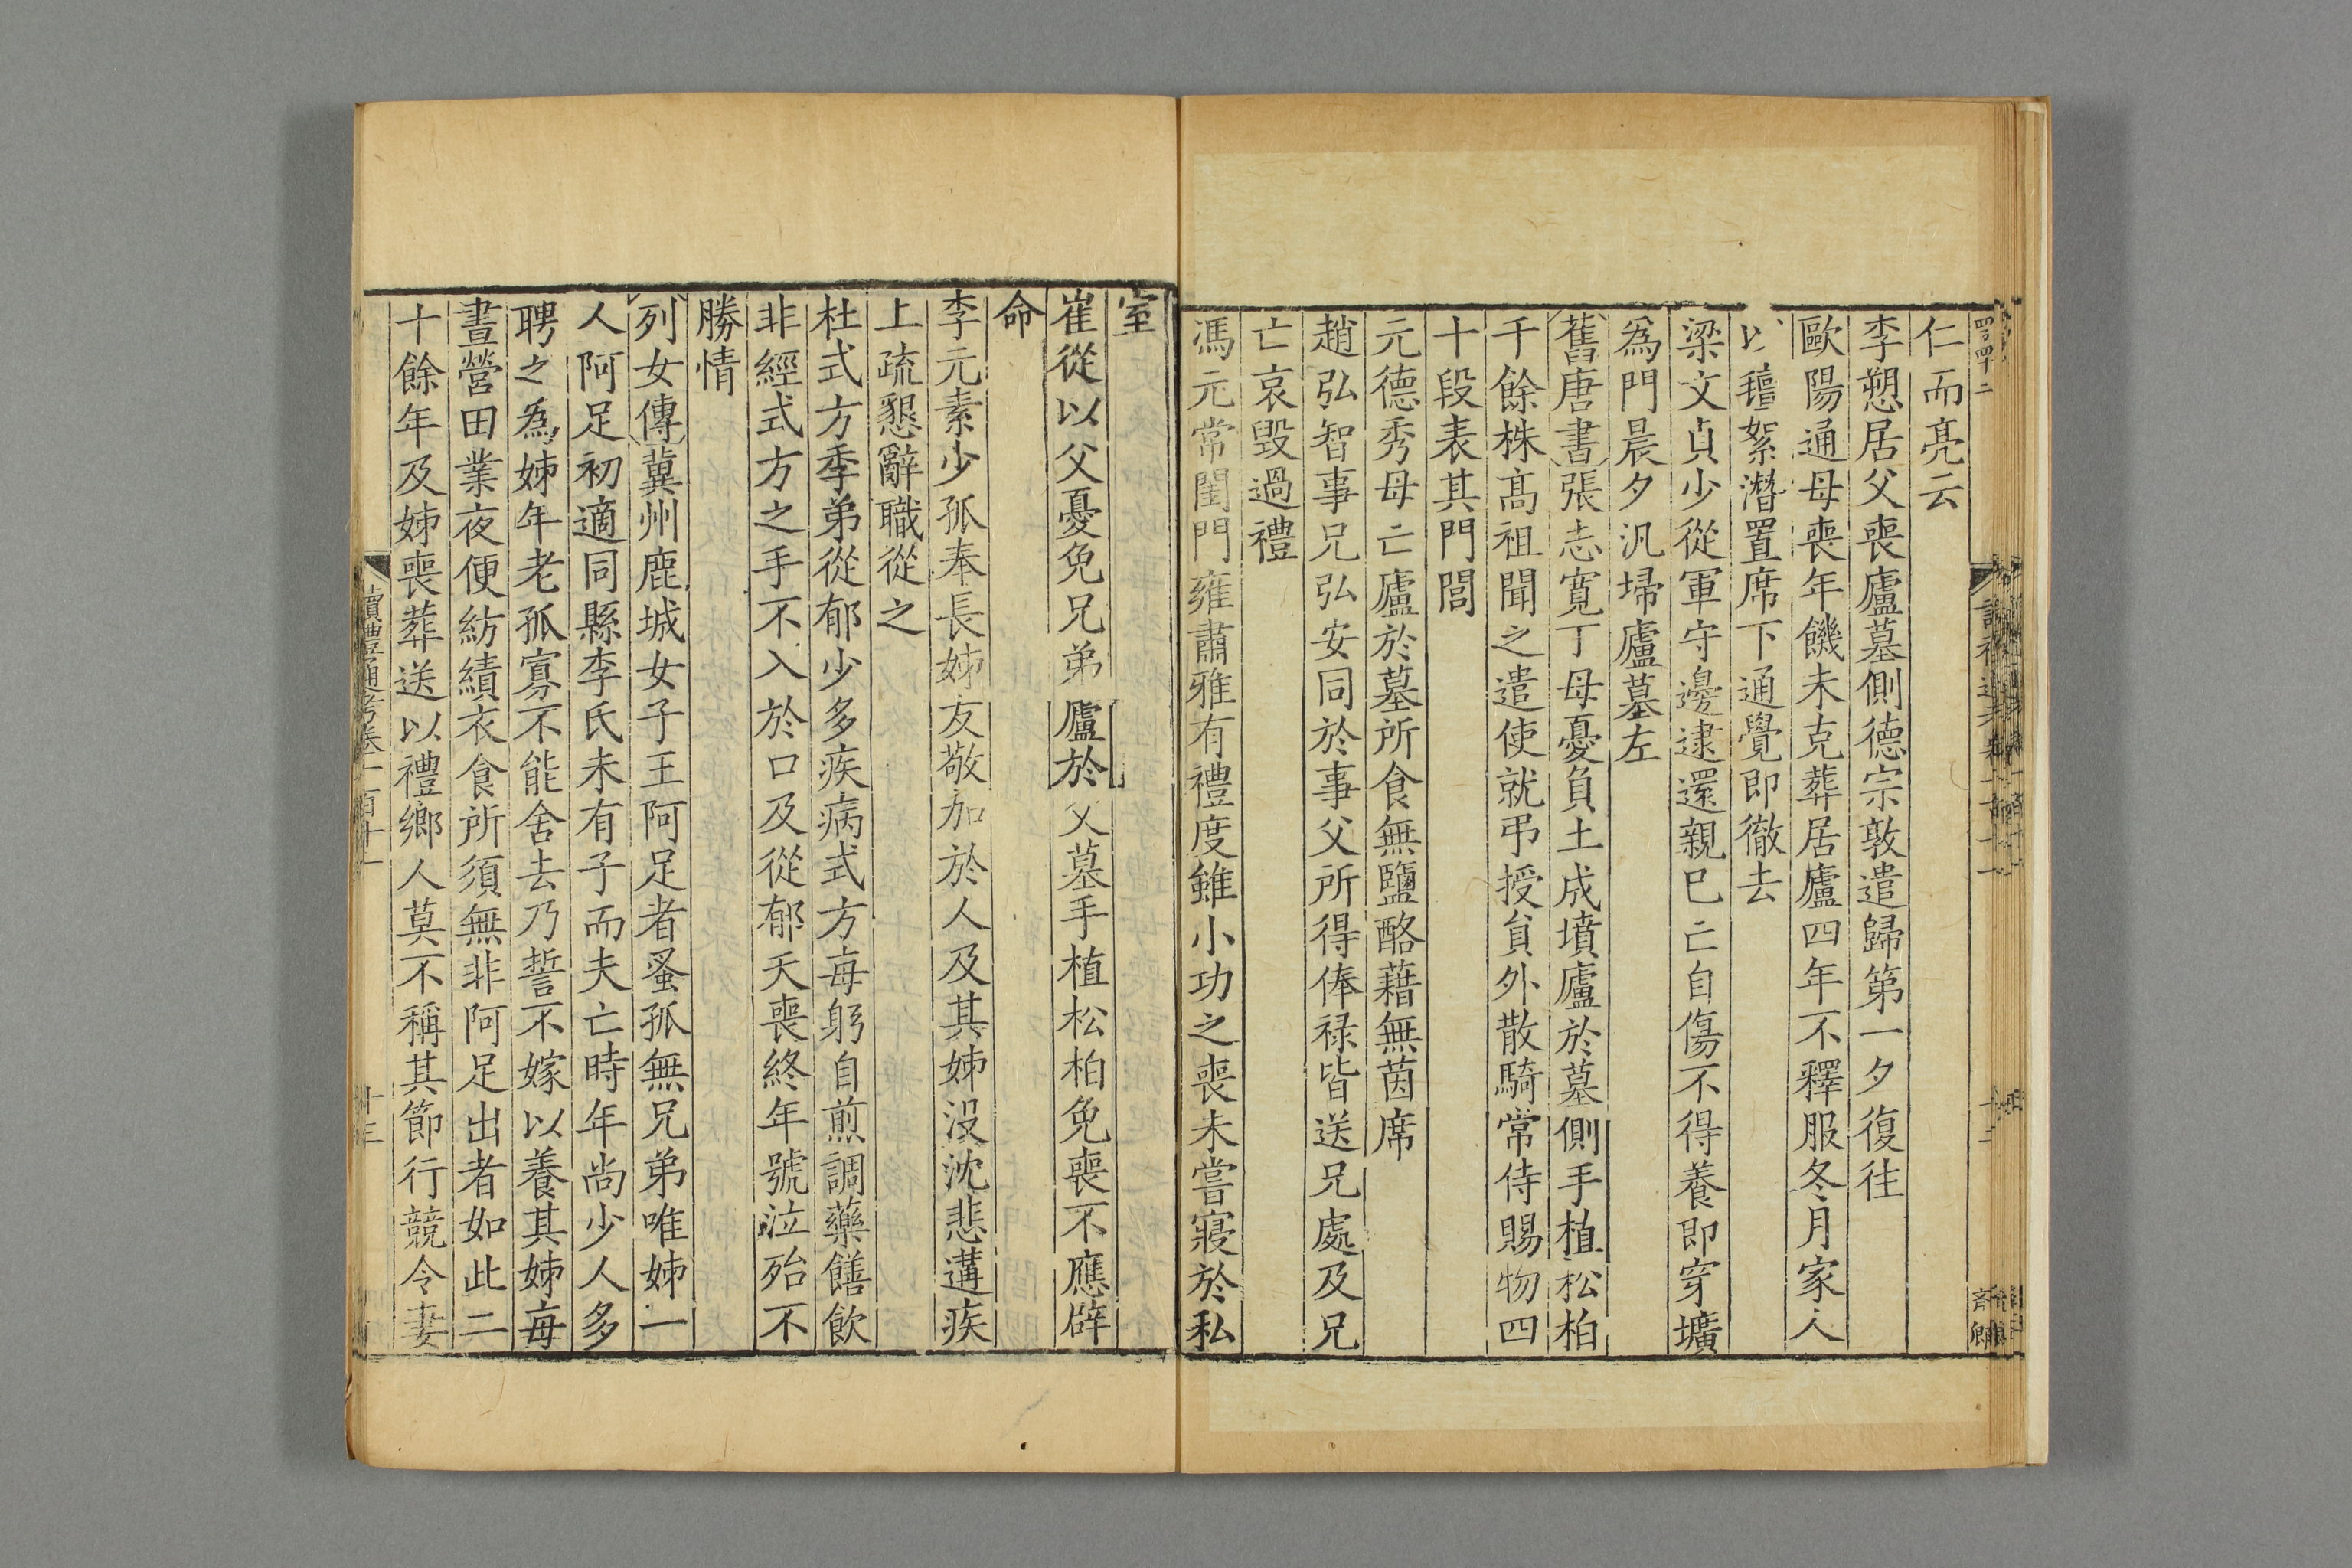 仁而亮云
李愬居父喪廬墓側德宗敦遣歸第一夕復往
歐陽通母喪年饑未克葬居廬四年不釋服冬月家人
以氊絮潛置席下通覺即徹去
梁文貞少從軍守邊逮還親已亡自傷不得養即穿壙
為門晨夕汎埽廬墓左
舊唐書張志寬丁母憂負土成墳廬於墓側手植松柏
千餘株高祖聞之遣使就弔授員外散騎常侍賜物四
十段表其門閭
元德秀母亡廬於墓所食無鹽酪藉無茵席
趙弘智事兄弘安同於事父所得俸祿皆送兄處及兄
亡哀毀過禮
馮元常閨門雍肅雅有禮度雖小功之喪未嘗寢於私
室
崔從以父憂免兄弟廬於父墓手植松柏免喪不應辟
命
李元素少孤奉長姊友敬加於人及其姊沒沈悲遘疾
上疏懇辭職從之
杜式方季弟從郁少多疾病式方每躬自煎調藥饍飲
非經式方之手不入於口及從郁夭喪終年號泣殆不
勝情
列女傳冀州鹿城女子王阿足者蚤孤無兄弟唯姊一
人阿足初適同縣李氏未有子而夫亡時年尚少人多
聘之為姊年老孤寡不能舍去乃誓不嫁以養其姊每
晝營田業夜便紡績衣食所須無非阿足出者如此二
十餘年及姊喪葬送以禮鄉人莫不稱其節行競令妻
讀禮通考卷一百十一
十三